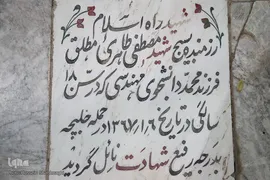 شهید راه اسلام
رزمنده بسیج شهید مصطفی طاهری مطلق
فرزند محمد دانشجوی مهندسی که در سن ۱۸
سالگی در تاریخ ۱۳۶۷/۱/۶ در حمله حلبچه
بدرجه رفیع شهادت نائل گردید